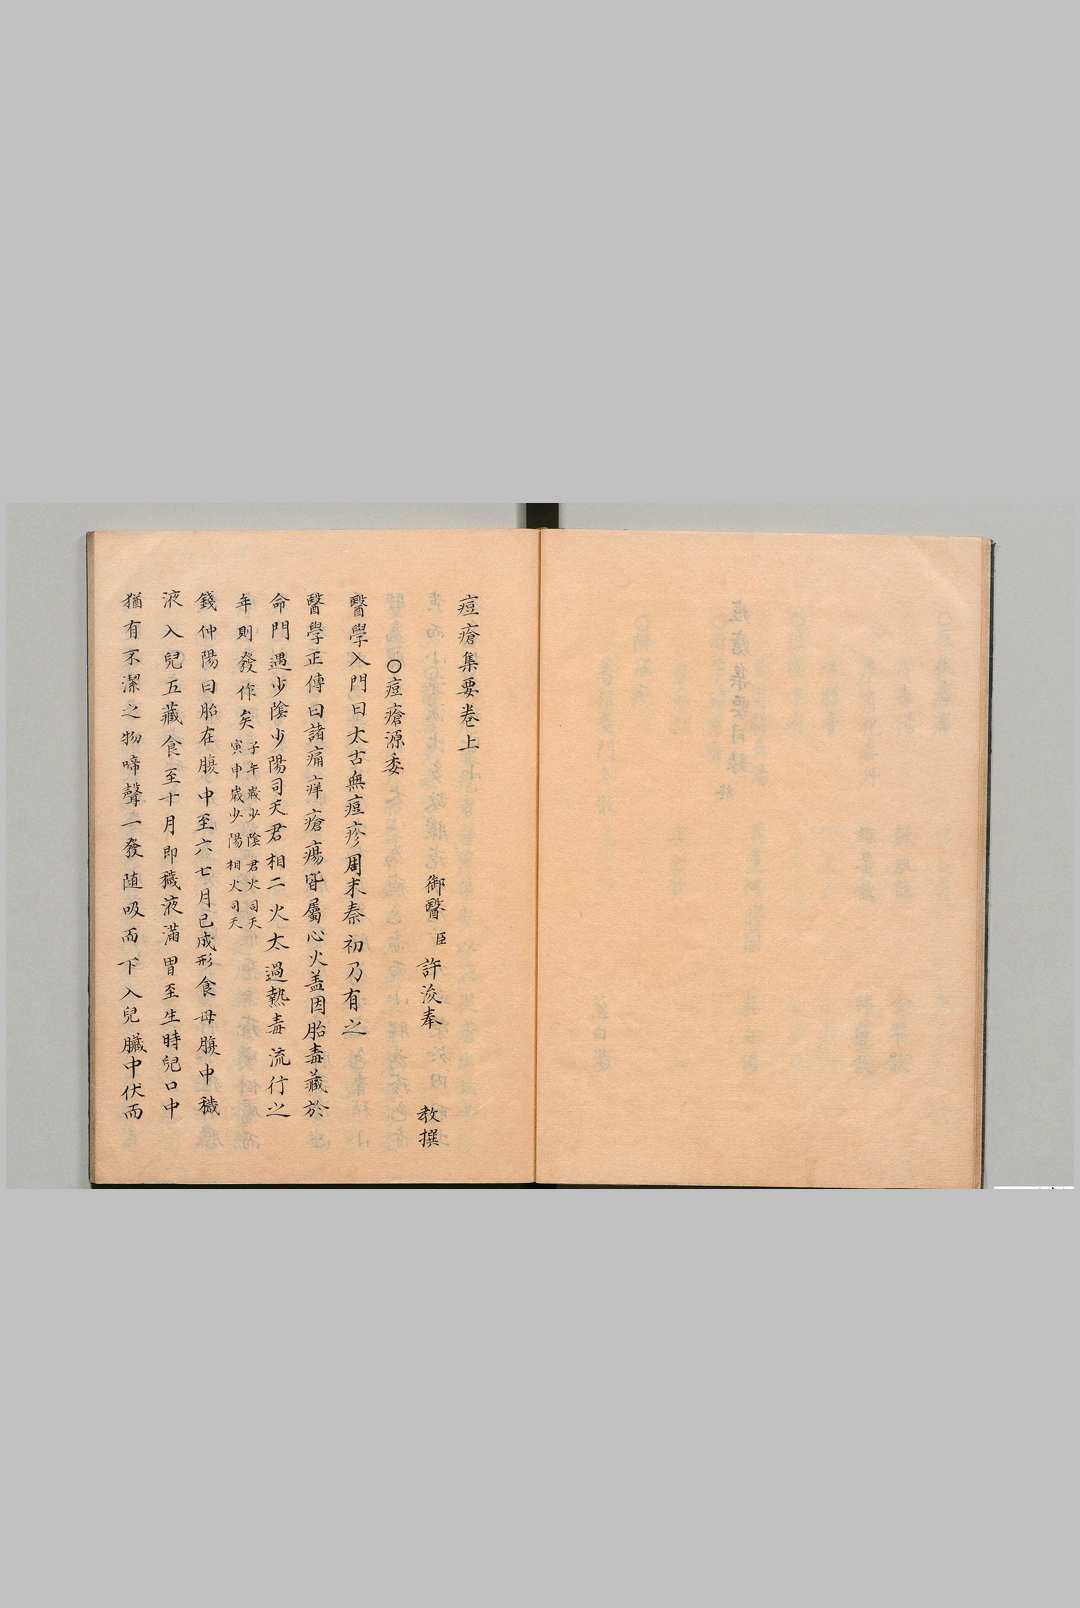 痘瘡集要卷上
御醫 臣 許浚奉 教撰
○痘瘡源委
醫學入門曰太古無痘疹周末秦初乃有之
醫學正傳曰諸痛痒瘡瘍皆屬心火盖因胎毒藏於
命門遇少陰少陽司天君相二火太過熱毒流行之
年則發作矣 子午歲少陰君火司天
寅申歲少陽相火司天
錢仲陽曰胎在腹中至六七月已成形食母腹中穢
液入兒五藏食至十月即穢液滿胃至生時兒口中
猶有不潔之物啼聲一發随吸而下入兒臟中伏而